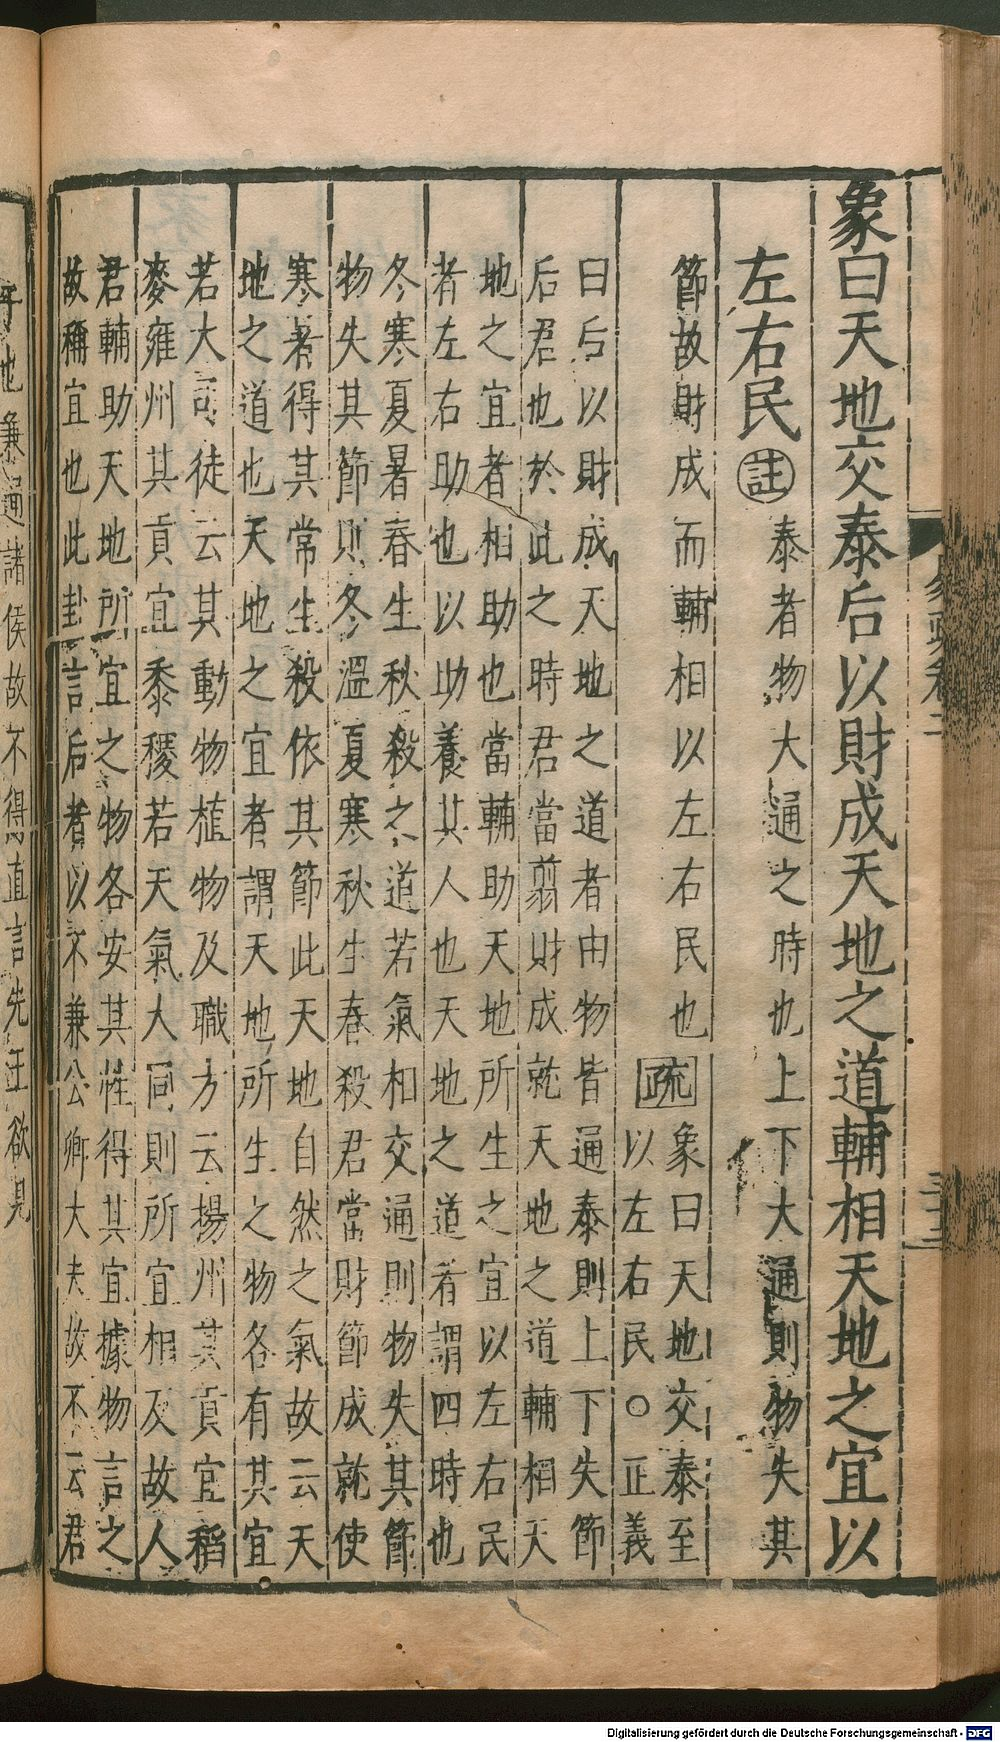 象曰天地交泰后以財成天地之道輔相天地之宜以
左右民註泰者物大通之時也上下大通則物失其
節故財成而輔相以左右民也疏象曰天地交泰至
以左右民○正義
曰后以財成天地之道者由物皆通泰則上下失節
后君也於此之時君當翦財成就天地之道輔相天
地之宜者相助也當輔助天地所生之宜以左右民
者左右助也以助養其人也天地之道者謂四時也
冬寒夏暑春生秋殺之道若氣相交通則物失其節
物失其節則冬溫夏寒秋生春殺君當財節成就使
寒暑得其常生殺依其節此天地自然之氣故云天
地之道也天地之宜者謂天地所生之物各有其宜
若大司徒云其動物植物及職方云揚州其貢宜稻
麥雍州其貢宜黍稷若天氣大同則所宜相反故人
君輔助天地所宜之物各安其性得其宜據物言之
故稱宜也此卦言后者以不兼公卿大夫故不云君
也兼通諸侯故不得直言先王欲見
Digitalisierung gefördert durch die Deutsche Forschungsgemeinschaft - DFG